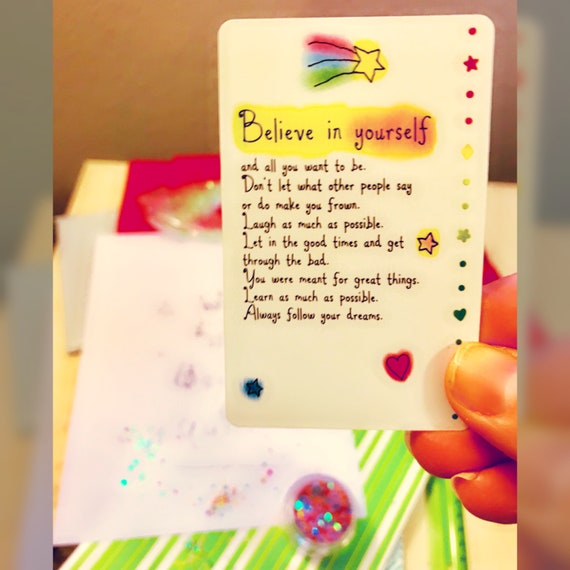 Believe in yourself
and all you want to be.
Don't let what other people say
or do make you frown.
Laugh as much as possible.
Let in the good times and get
through the bad.
You were meant for great things.
Learn as much as possible.
Always follow your dreams.